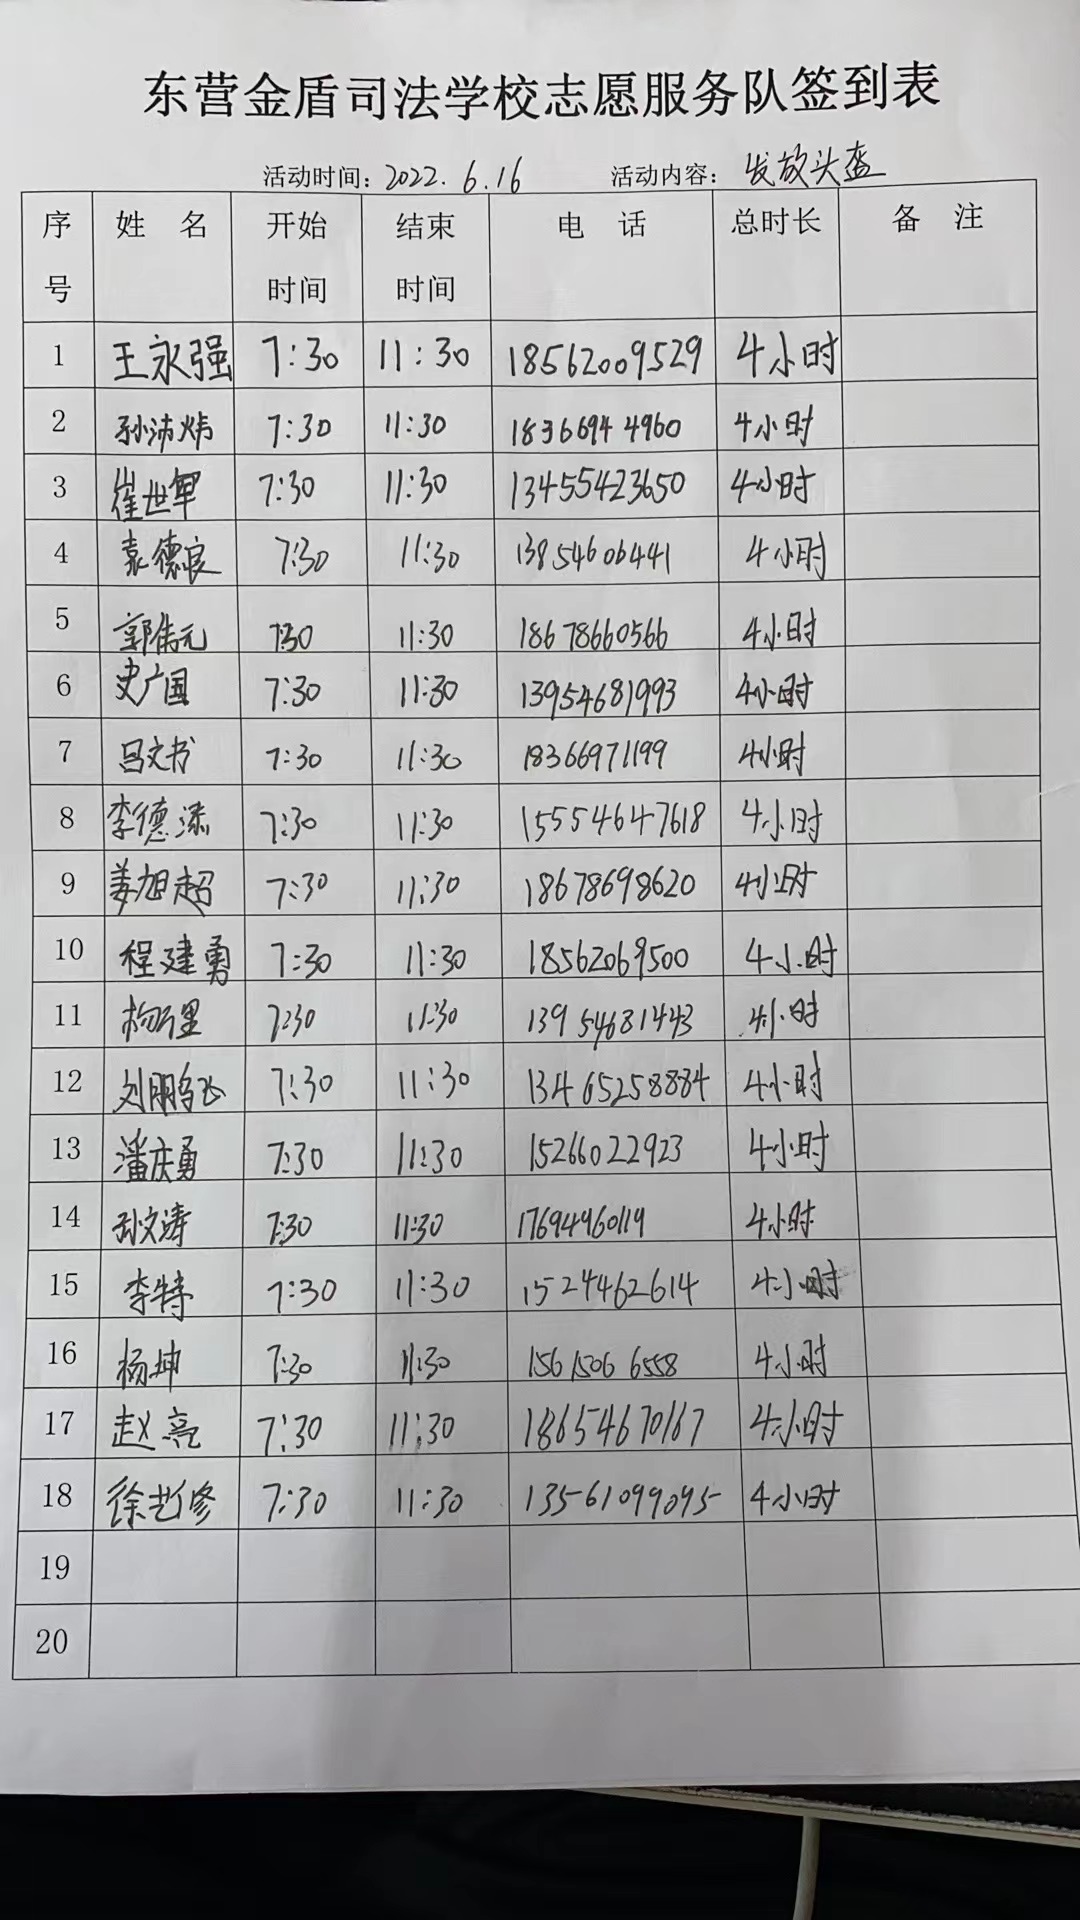 东营金盾司法学校志愿服务队签到表
活动时间：2022.6.16 活动内容：发放头盔
序号 姓名 开始时间 结束时间 电话 总时长 备注
1 王永强 7:30 11:30 18562009529 4小时
2 孙沛炜 7:30 11:30 18366944960 4小时
3 崔世军 7:30 11:30 13455423650 4小时
4 袁德良 7:30 11:30 13854606441 4小时
5 郭伟元 7:30 11:30 18678660566 4小时
6 史广国 7:30 11:30 13954681993 4小时
7 吕文书 7:30 11:30 18366971199 4小时
8 李德添 7:30 11:30 15554647618 4小时
9 姜旭超 7:30 11:30 18678698620 4小时
10 程建勇 7:30 11:30 18562069500 4小时
11 7:30 11:30 13954681443 4小时
12 刘鹏飞 7:30 11:30 13465258884 4小时
13 潘庆勇 7:30 11:30 15266022923 4小时
14 孙文涛 7:30 11:30 17694960119 4小时
15 李特 7:30 11:30 1524462614 4小时
16 杨坤 7:30 11:30 15615066558 4小时
17 赵亮 7:30 11:30 18654670167 4小时
18 徐艺修 7:30 11:30 13561099095 4小时
19
20